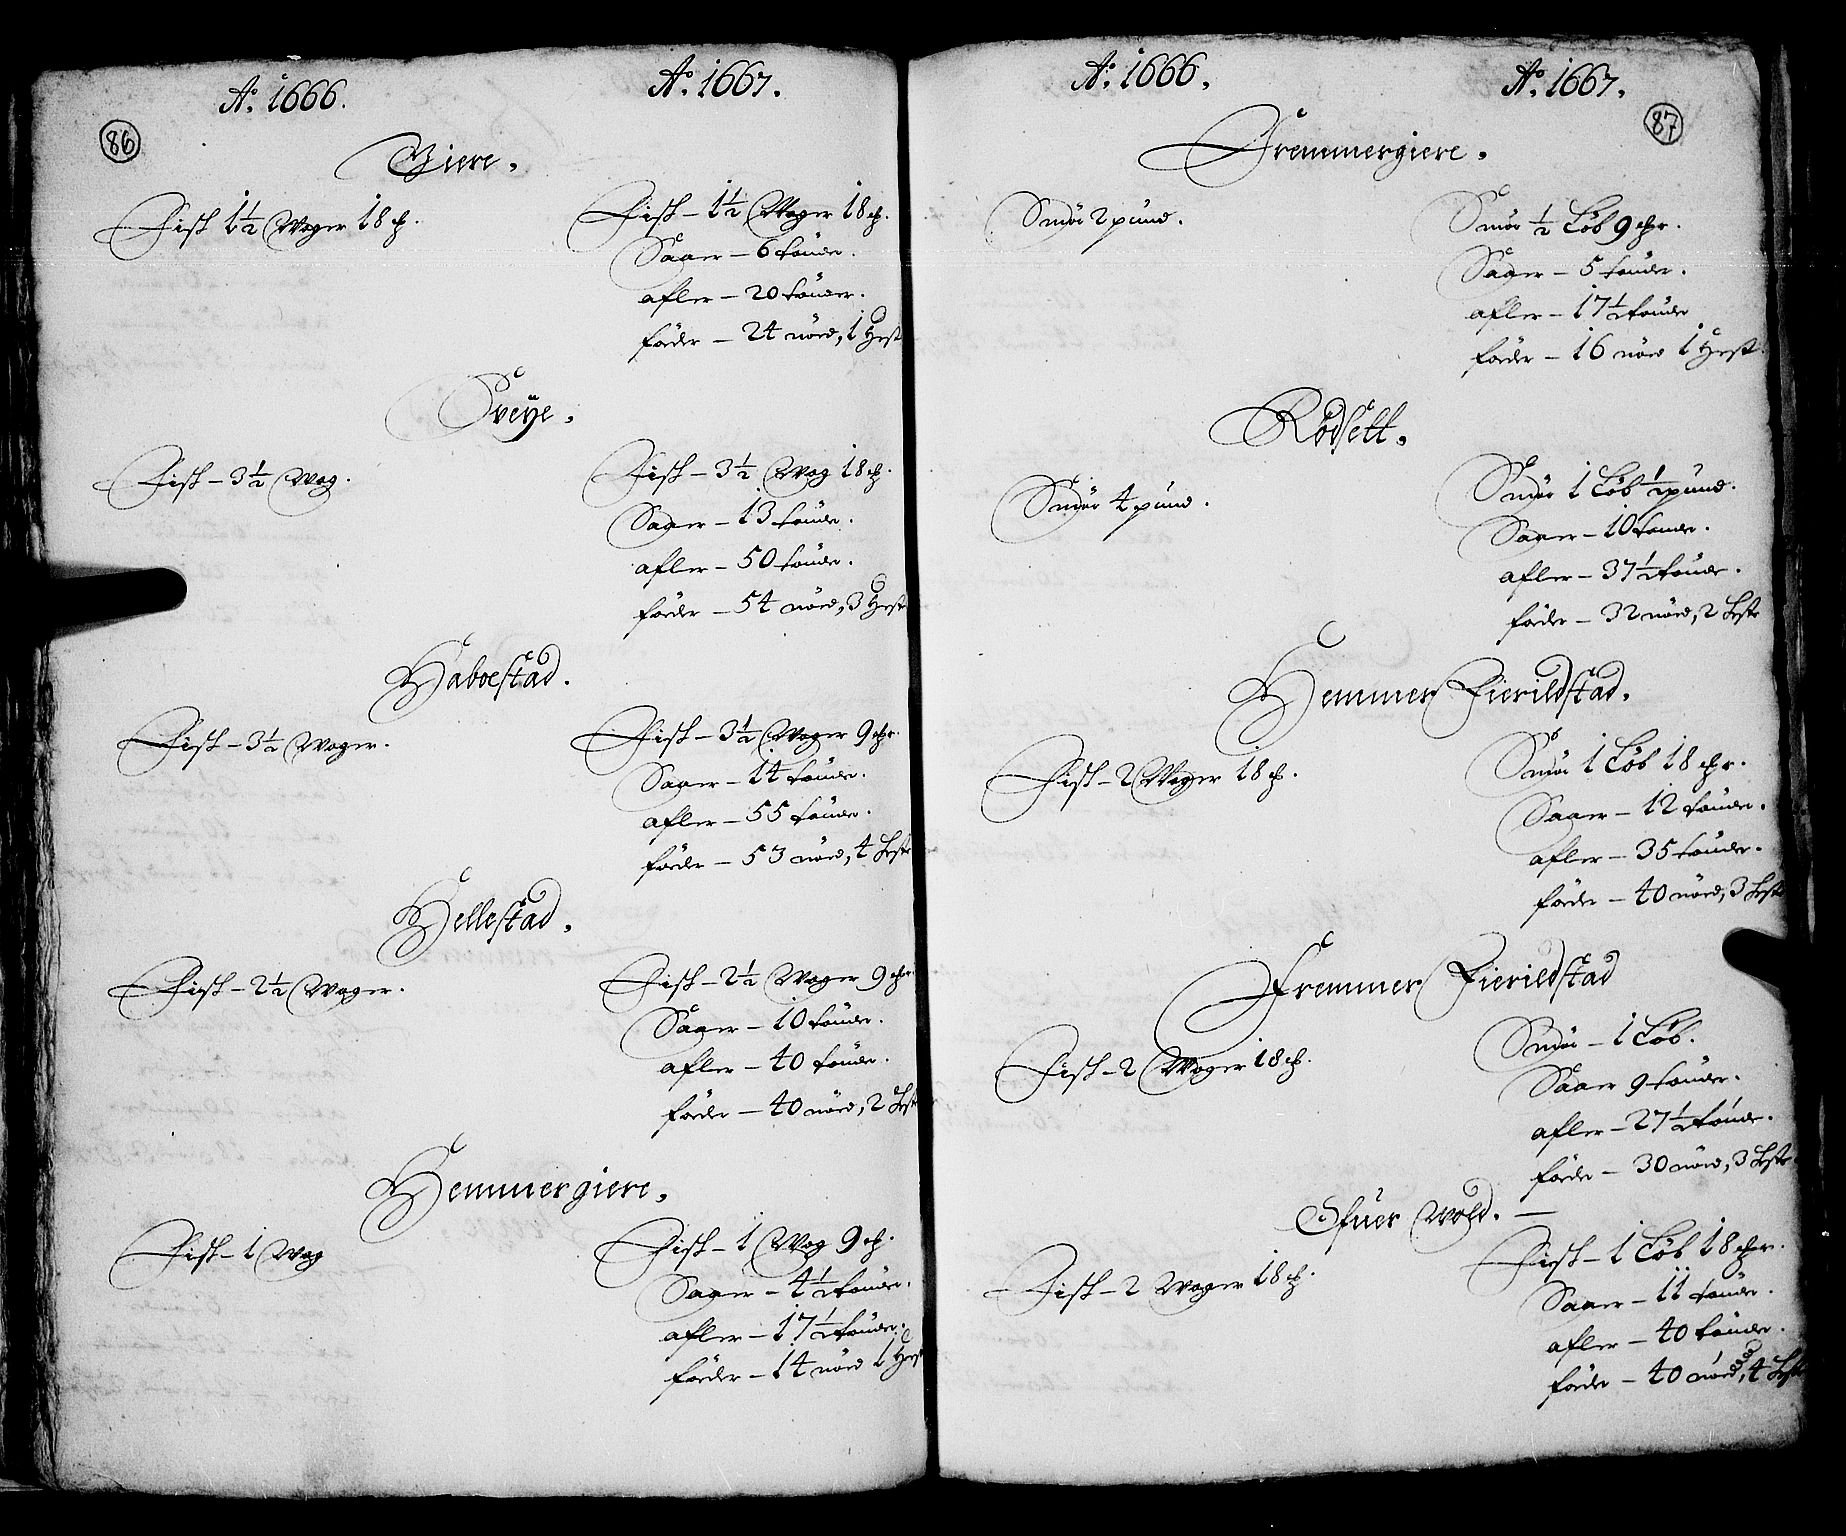 86
Aº. 1666. Aº. 1667.
Giere.
Fisk 1½ Woger 18 ℔. Fisk – 1½ Woger 18 ℔.
Saaer – 6 tønde.
afler – 20 tønder.
føder – 24 nöed, 1 Hest
Sveÿe.
Fisk – 3½ Wog. Fisk – 3½ Wog 18 ℔.
Saaer – 13 tønde.
afler – 50 tønde.
føder – 54 nöed, 3 Heste
Haboestad.
Fisk – 3½ Woger. Fisk – 3½ Woger 9 ℔r.
Saaer – 14 tønde.
afler – 55 tønde.
føder – 53 nöed, 4 heste
Hellestad.
Fisk – 2½ Woger. Fisk – 2½ Woger 9 ℔r.
Saaer – 10 tønde.
afler – 40 tønde.
føder – 40 nöed, 2 heste
Hemmergiere.
Fisk – 1 Wog Fisk – 1 Wog 9 ℔.
Saaer – 4½ tønde.
afler – 17½ tønde.
føder – 14 nöed 1 Hest
87
Aº. 1666. Aº. 1667.
Fremmergiere.
Smör 2 pund. Smör ½ Løb 9 ℔r.
Saaer – 5 tønde.
afler – 17½ tønde
føder – 16 nöed 1 Hest.
Rödsett.
Smör 4 pund. Smör 1 Løb ½ pund.
Saaer – 10 tønde.
afler – 37½ tønde.
føder – 32 nöed, 2 heste
Hemmer Fierildstad.
Fisk – 2 Woger 18 ℔. Smör 1 Løb 18 ℔r.
Saaer – 12 tønde.
afler – 35 tønde.
føder – 40 nöed, 3 heste
Fremmer Fierildstad
Fisk – 2 Woger 18 ℔. Smör – 1 Løb.
Saaer 9 tønde.
afler – 27½ tønde.
føder – 30 nöed, 3 heste
Ofuer Wold. –
Fisk – 2 Woger 18 ℔. Fisk – 1 Løb 18 ℔r.
Saaer – 11 tønde.
afler – 40 tønde.
føder – 40 nöed, 4 heste